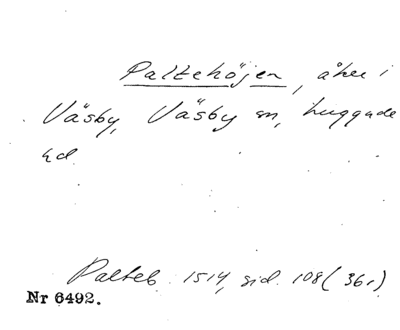 Paltehöjen, åker i
Väsby, Väsby sn, Luggude
hd.
Palteb. 1514, sid. 108 (36r)
Nr 6492.